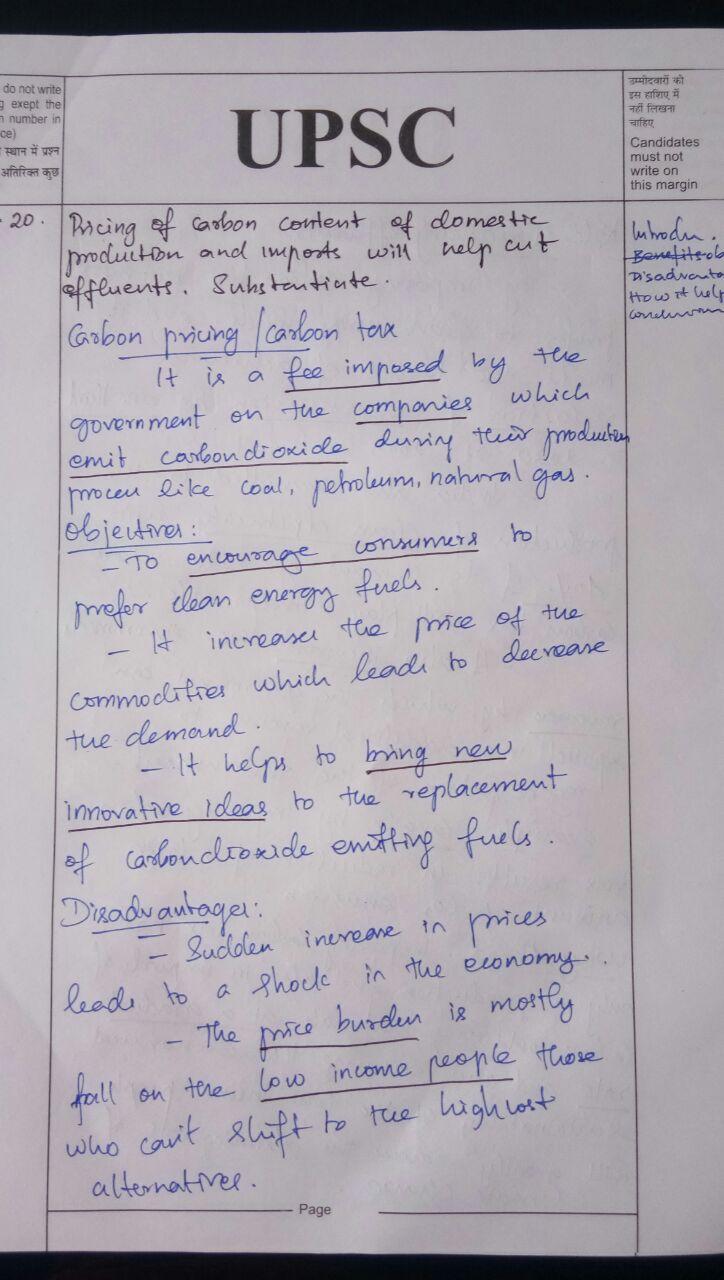 do not write
g exept the
n number in
ce)
स्थान में प्रश्न
अतिरिक्त कुछ
UPSC
उम्मीदवारों को
इस हाशिए में
नहीं लिखना
चाहिए
Candidates
must not
write on
this margin
20.
Pricing of carbon content of domestic
production and imports will help cut
effluents. Substantiate.
Introdu.
Benefits
Disadvanta
How it help
conclusion
Carbon pricing / carbon tax
It is a fee imposed by the
government on the companies which
emit carbondioxide during their production
process like coal, petroleum, natural gas.
Objectives:
- To encourage consumers to
prefer clean energy fuels.
- It increases the price of the
commodities which leads to decrease
the demand.
- It helps to bring new
innovative ideas to the replacement
of carbondioxide emitting fuels.
Disadvantages:
- Sudden increase in prices
leads to a shock in the economy.
- The price burden is mostly
fall on the low income people those
who can't shift to the high cost
alternatives.
Page